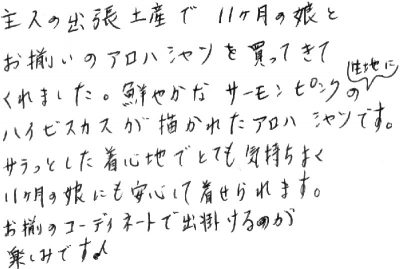 主人の出張土産で 11ヶ月の娘と
お揃いのアロハシャツを買ってきて
くれました。鮮やかな サーモンピンクの生地に
ハイビスカスが描かれたアロハシャツです。
サラっとした着心地でとても気持ちよく
11ヶ月の娘にも安心して着せられます。
お揃のコーディネートで出掛けるのが
楽しみです♪